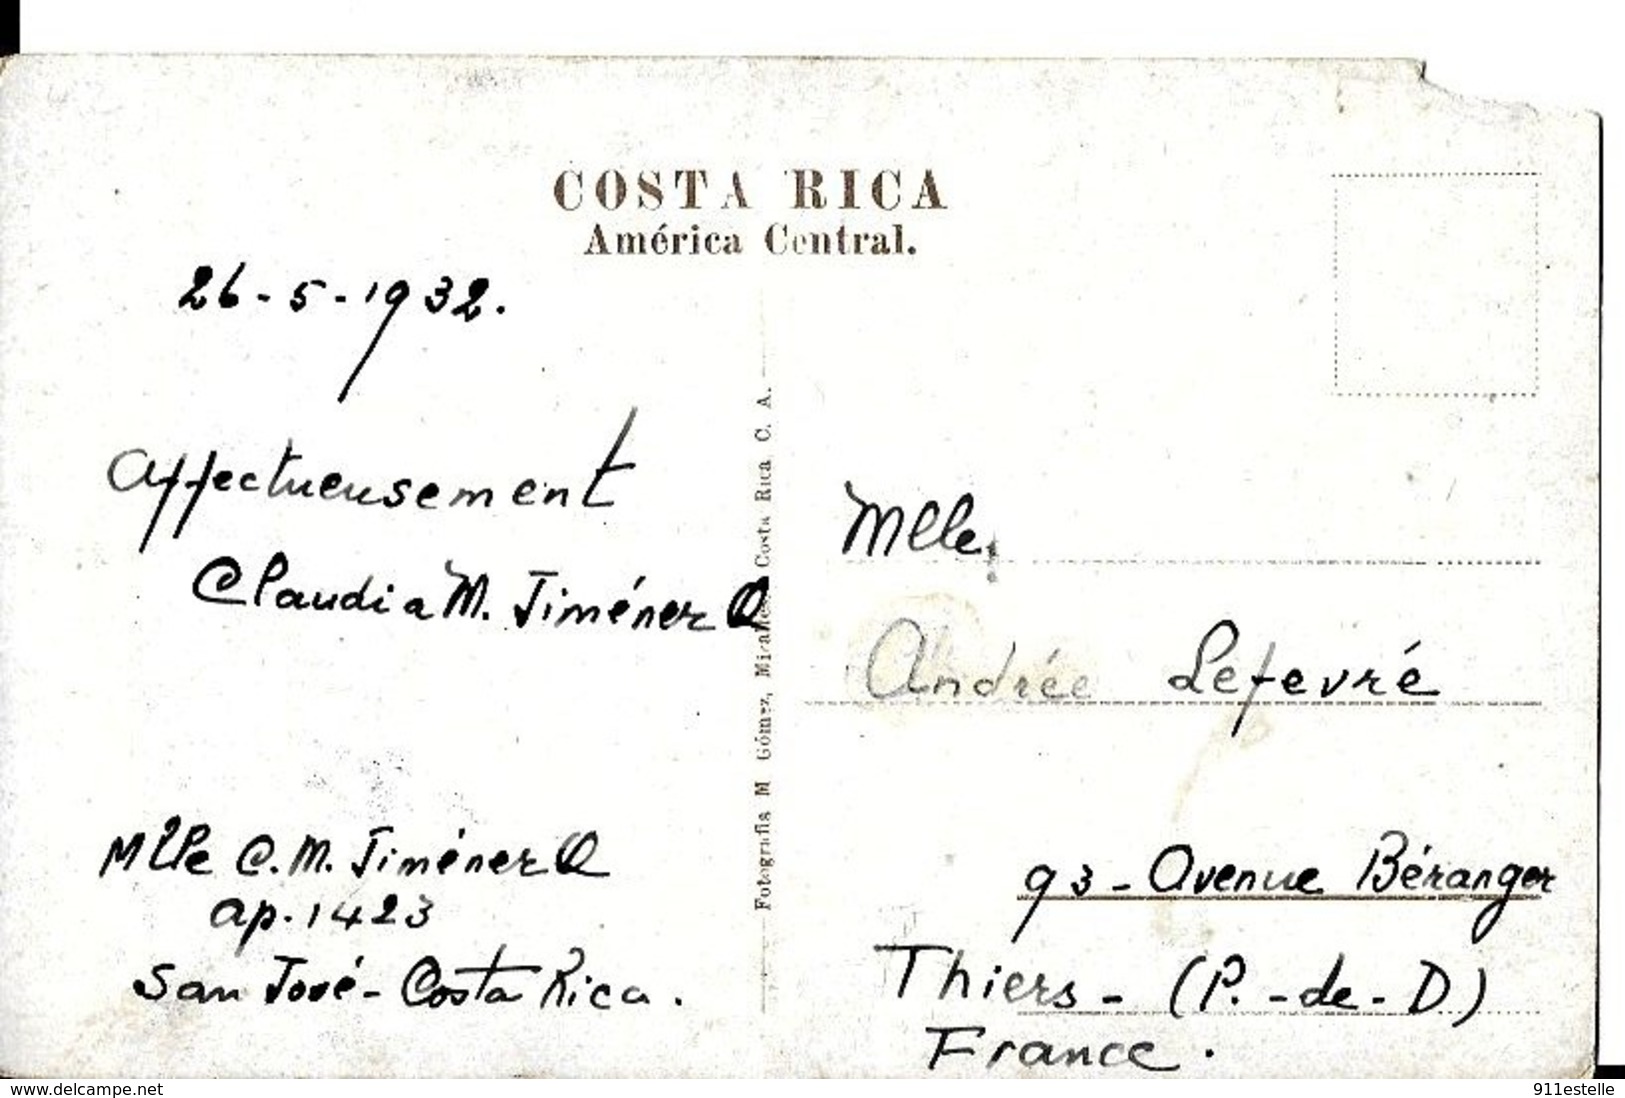 COSTA RICA
América Central.
26-5-1932.
Affectueusement
Claudia M. Jiménez Q
Mlle C. M. Jiménez Q
ap. 1423
San José - Costa Rica.
Fotografía M Gómez, Miralles Costa Rica C. A.
Mlle.
Andrée Lefevré
93 - Avenue Béranger
Thiers - (P.-de-D)
France.
www.delcampe.net
911estelle